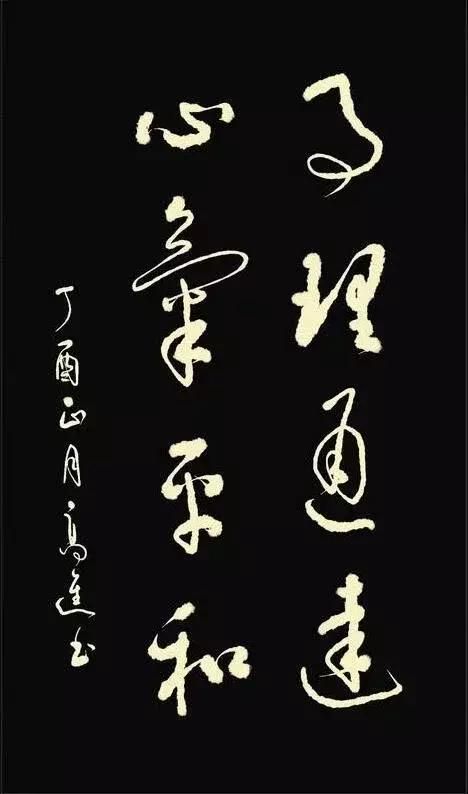 事理通達
心氣平和
丁酉正月高進书